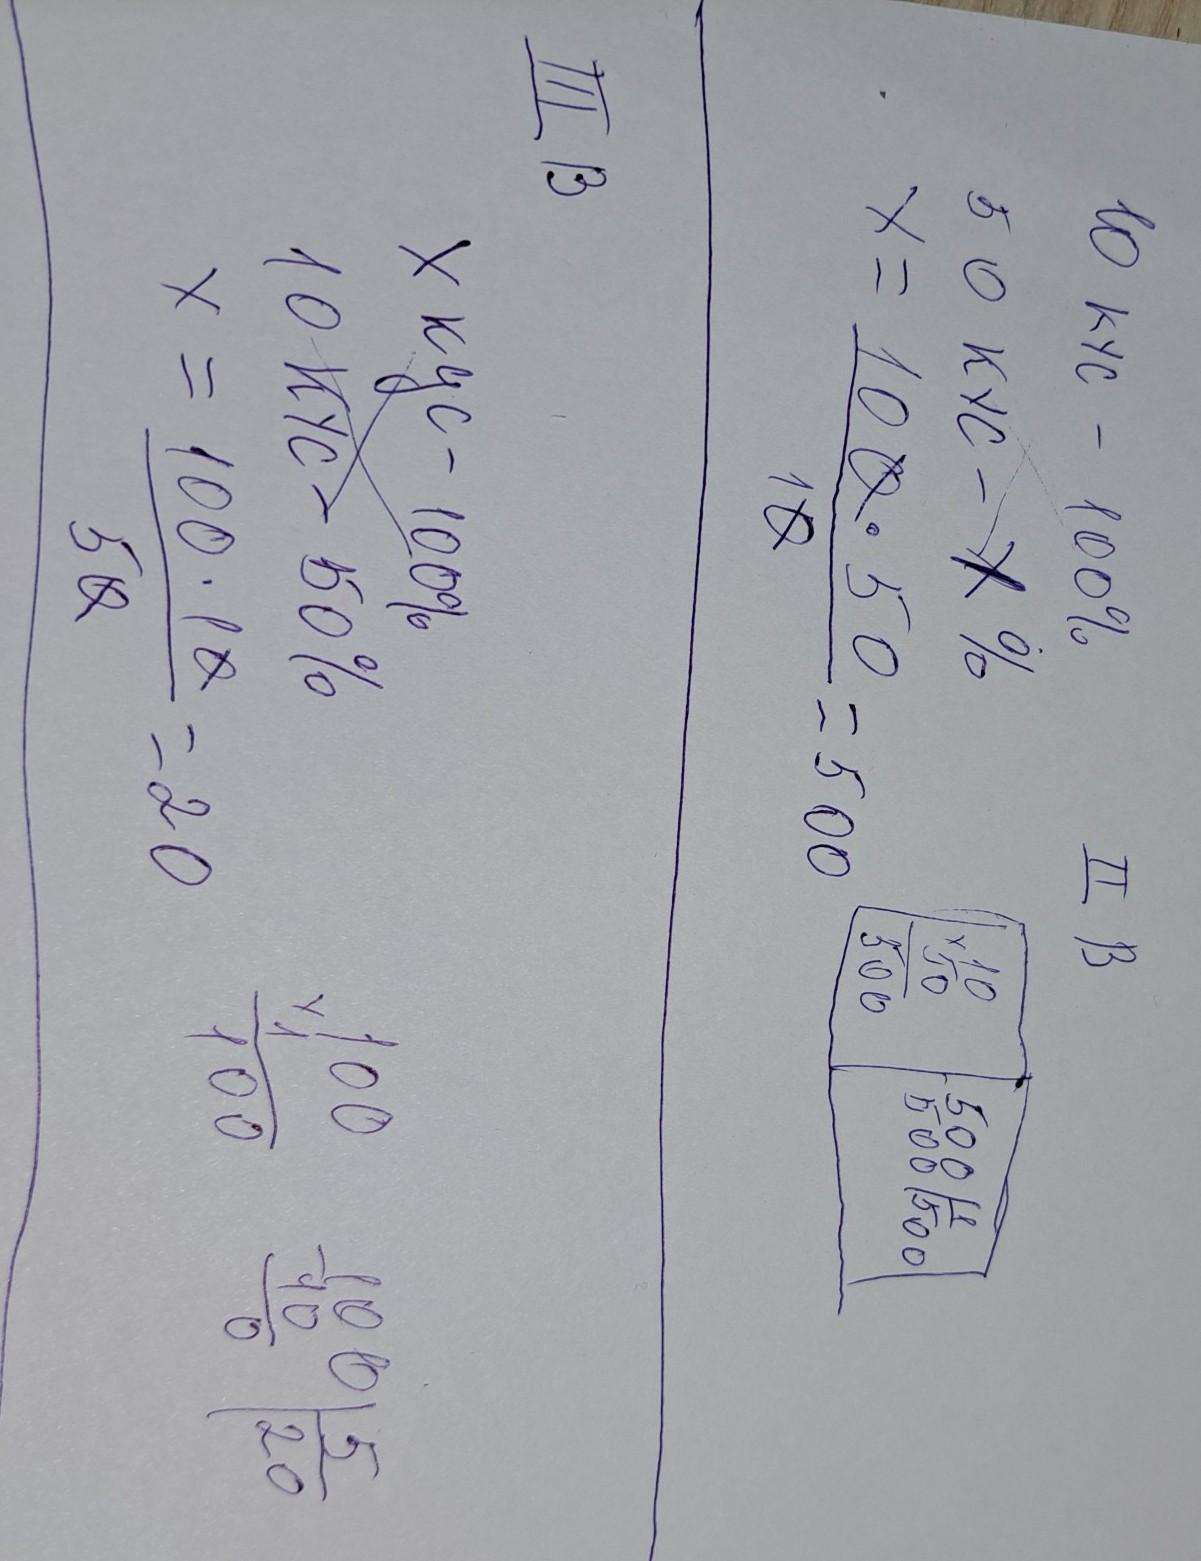 II В
10 кус - 100%
50 кус - х %
х = 100 · 50 = 500
10
10
× 50
500
500 | 1
500 | 500
III В
х кус - 100%
10 кус - 50%
х = 100 · 10 = 20
50
100
× 1
100
100 | 5
- 10 | 20
0